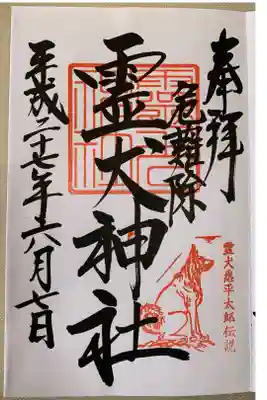 奉拝
危難除
霊犬神社
平成二十七年六月七日
霊犬悉平太郎伝説